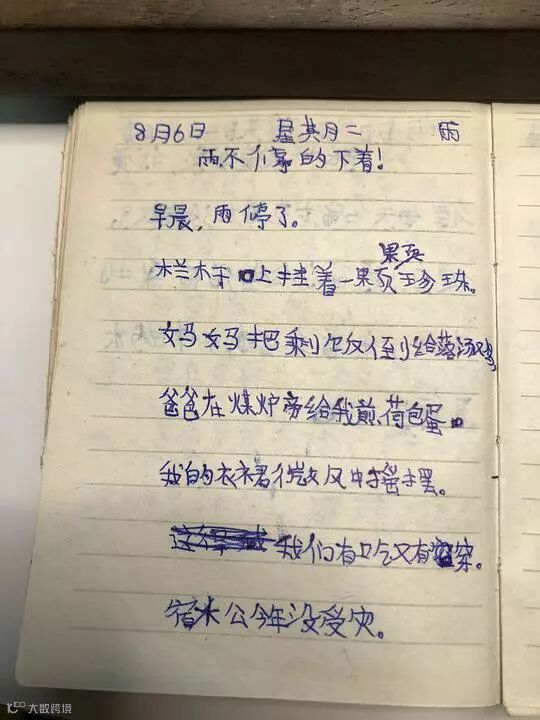 8月6日 星期二 雨
雨不停的下着!
早晨,雨停了。
果颗
栏杆上挂着一颗珍珠。
妈妈把剩饭倒给落汤鸡
爸爸在煤炉旁给我煎荷包蛋。
我的衣裙微风中摇摆。
我们有吃又有穿。
宿米公今年没受灾。
大数跨境